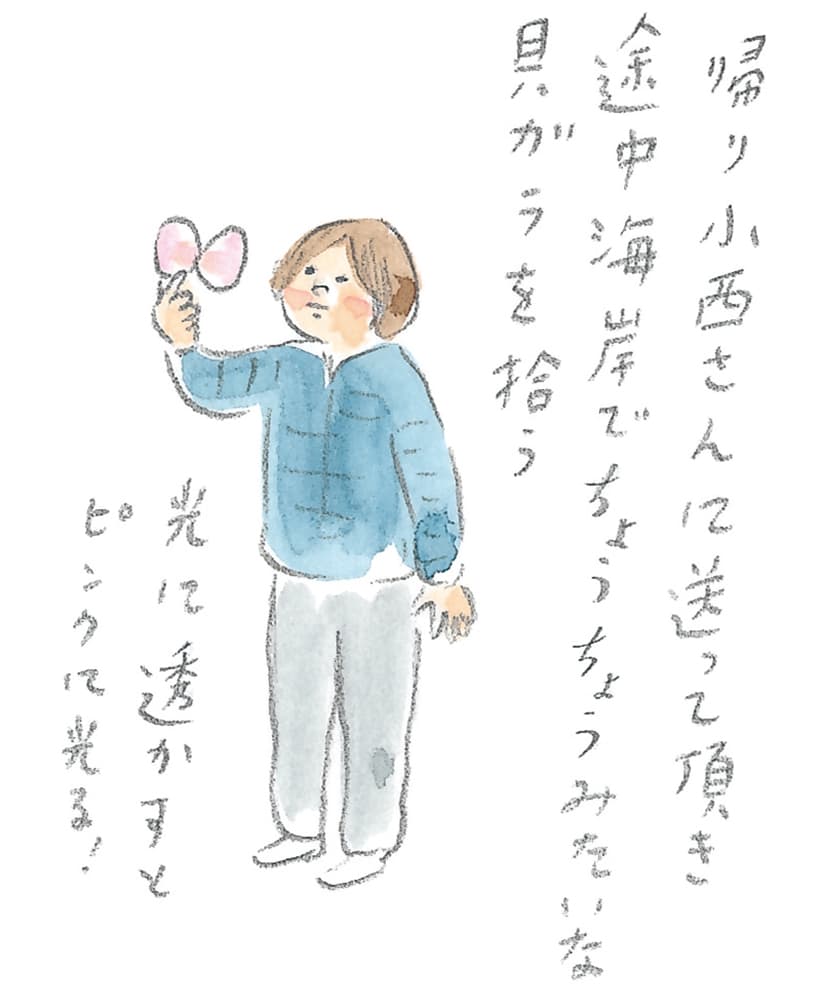 帰り小西さんに送って頂き
途中海岸でちょうちょうみたいな
貝がらを拾う
光に透かすと
ピンクに光る!